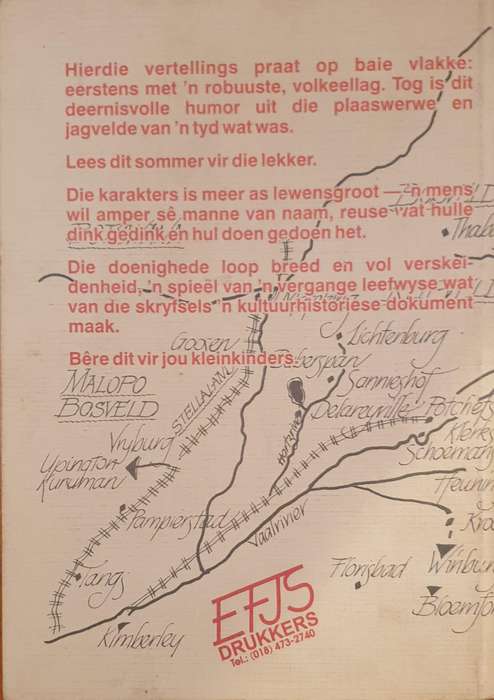 Hierdie vertellings praat op baie vlakke:
eerstens met 'n robuuste, volkeellag. Tog is dit
deernisvolle humor uit die plaaswerwe en
jagvelde van 'n tyd wat was.
Lees dit sommer vir die lekker.
Die karakters is meer as lewensgroot — 'n mens
wil amper sê manne van naam, reuse wat hulle
dink gedink en hul doen gedoen het.
Die doenighede loop breed en vol verskei-
denheid, 'n spieël van 'n vergange leefwyse wat
van die skryfsels 'n kultuurhistoriese dokument
maak.
Bêre dit vir jou kleinkinders.
Goosen
Lichtenburg
Sannieshof
MALOPO
BOSVELD
STELLALAND
Delareyville
Vryburg
Upington
Kuruman
Hartsrivier
Pampierstad
Vaalrivier
Tangs
Florisbad
Kimberley
EFJS
DRUKKERS
Tel.: (018) 473-2740